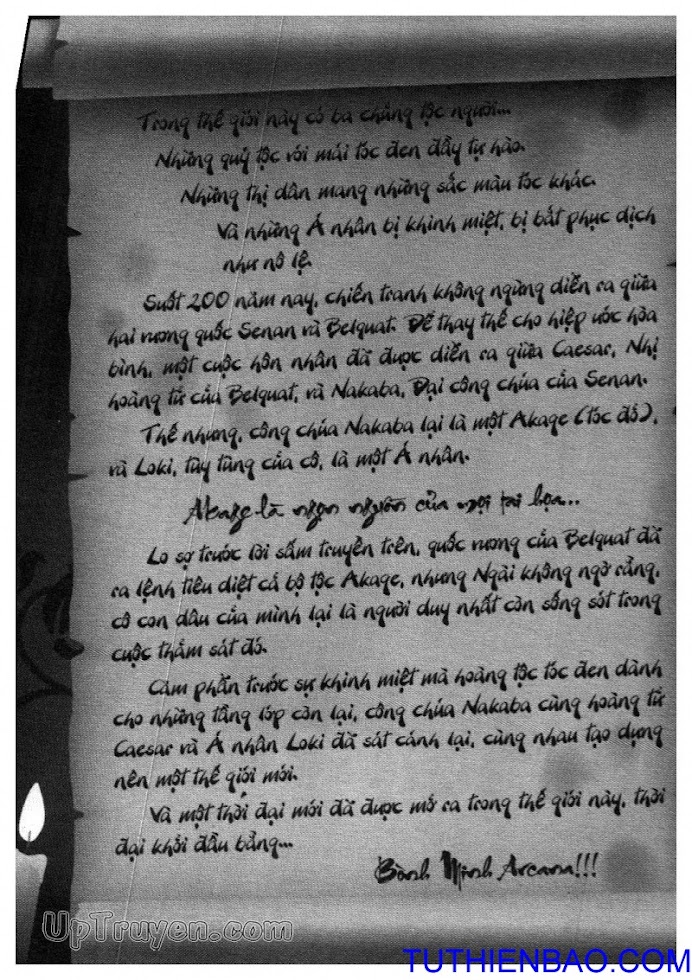 Trong thế giới này có ba chủng tộc người...
Những quý tộc với mái tóc đen đầy tự hào.
Những thị dân mang những sắc màu tóc khác.
Và những Á nhân bị khinh miệt, bị bắt phục dịch
như nô lệ.
Suốt 200 năm nay, chiến tranh không ngừng diễn ra giữa
hai vương quốc Senan và Belquat. Để thay thế cho hiệp ước hòa
bình, một cuộc hôn nhân đã được diễn ra giữa Caesar, Nhị
hoàng tử của Belquat, và Nakaba, Đại công chúa của Senan.
Thế nhưng, công chúa Nakaba lại là một Akage (tóc đỏ),
và Loki, tùy tùng của cô, là một Á nhân.
Akage là ngọn nguồn của mọi tai họa...
Lo sợ trước lời sấm truyền trên, quốc vương của Belquat đã
ra lệnh tiêu diệt cả bộ tộc Akage, nhưng Ngài không ngờ rằng,
cô con dâu của mình lại là người duy nhất còn sống sót trong
cuộc thảm sát đó.
Căm phẫn trước sự khinh miệt mà hoàng tộc tóc đen dành
cho những tầng lớp còn lại, công chúa Nakaba cùng hoàng tử
Caesar và Á nhân Loki đã sát cánh lại, cùng nhau tạo dựng
nên một thế giới mới.
Và một thời đại mới đã được mở ra trong thế giới này, thời
đại khởi đầu bằng...
Bình Minh Arcana!!!
UpTruyen.com
TUTHIENBAO.COM